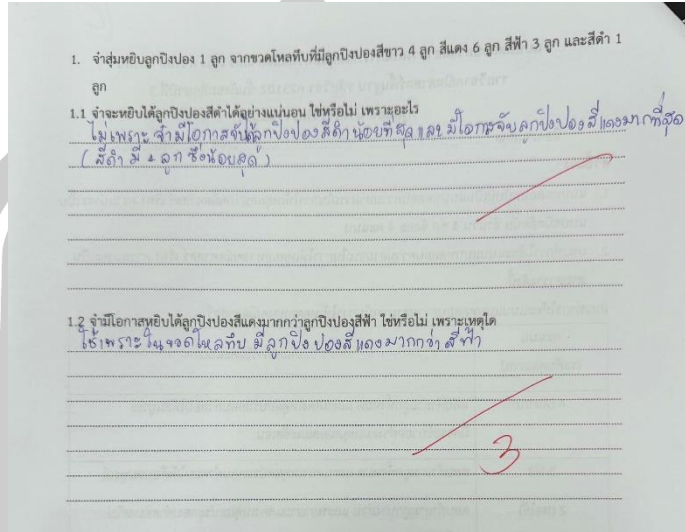 1. จำสุ่มหยิบลูกปิงปอง 1 ลูก จากขวดโหลทึบที่มีลูกปิงปองสีขาว 4 ลูก สีแดง 6 ลูก สีฟ้า 3 ลูก และสีดำ 1
ลูก
1.1 จำจะหยิบได้ลูกปิงปองสีดำได้อย่างแน่นอน ใช่หรือไม่ เพราะอะไร
ไม่ เพราะ จำมีโอกาสจับได้ลูกปิงปองสีดำน้อยที่สุด และ มีโอกาสจับลูกปิงปองสีแดงมากที่สุด
(สีดำ มี 1 ลูก ซึ่งน้อยสุด)
1.2 จำมีโอกาสหยิบได้ลูกปิงปองสีแดงมากกว่าลูกปิงปองสีฟ้า ใช่หรือไม่ เพราะเหตุใด
ใช่ เพราะ ในขวดโหลทึบ มีลูกปิงปองสีแดงมากกว่าสีฟ้า
3